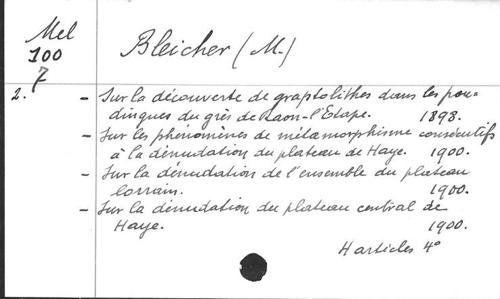 Mel
100
7
Bleicher (M.)
2. - Sur la découverte de graptolithes dans les pou-
dingues du grès de Raon-l'Etape. 1898.
- Sur les phénomènes de métamorphisme consécutifs
à la dénudation du plateau de Haye. 1900.
- Sur la dénudation de l'ensemble du plateau
lorrain. 1900.
- Sur la dénudation du plateau central de
Haye. 1900.
4 articles 4°